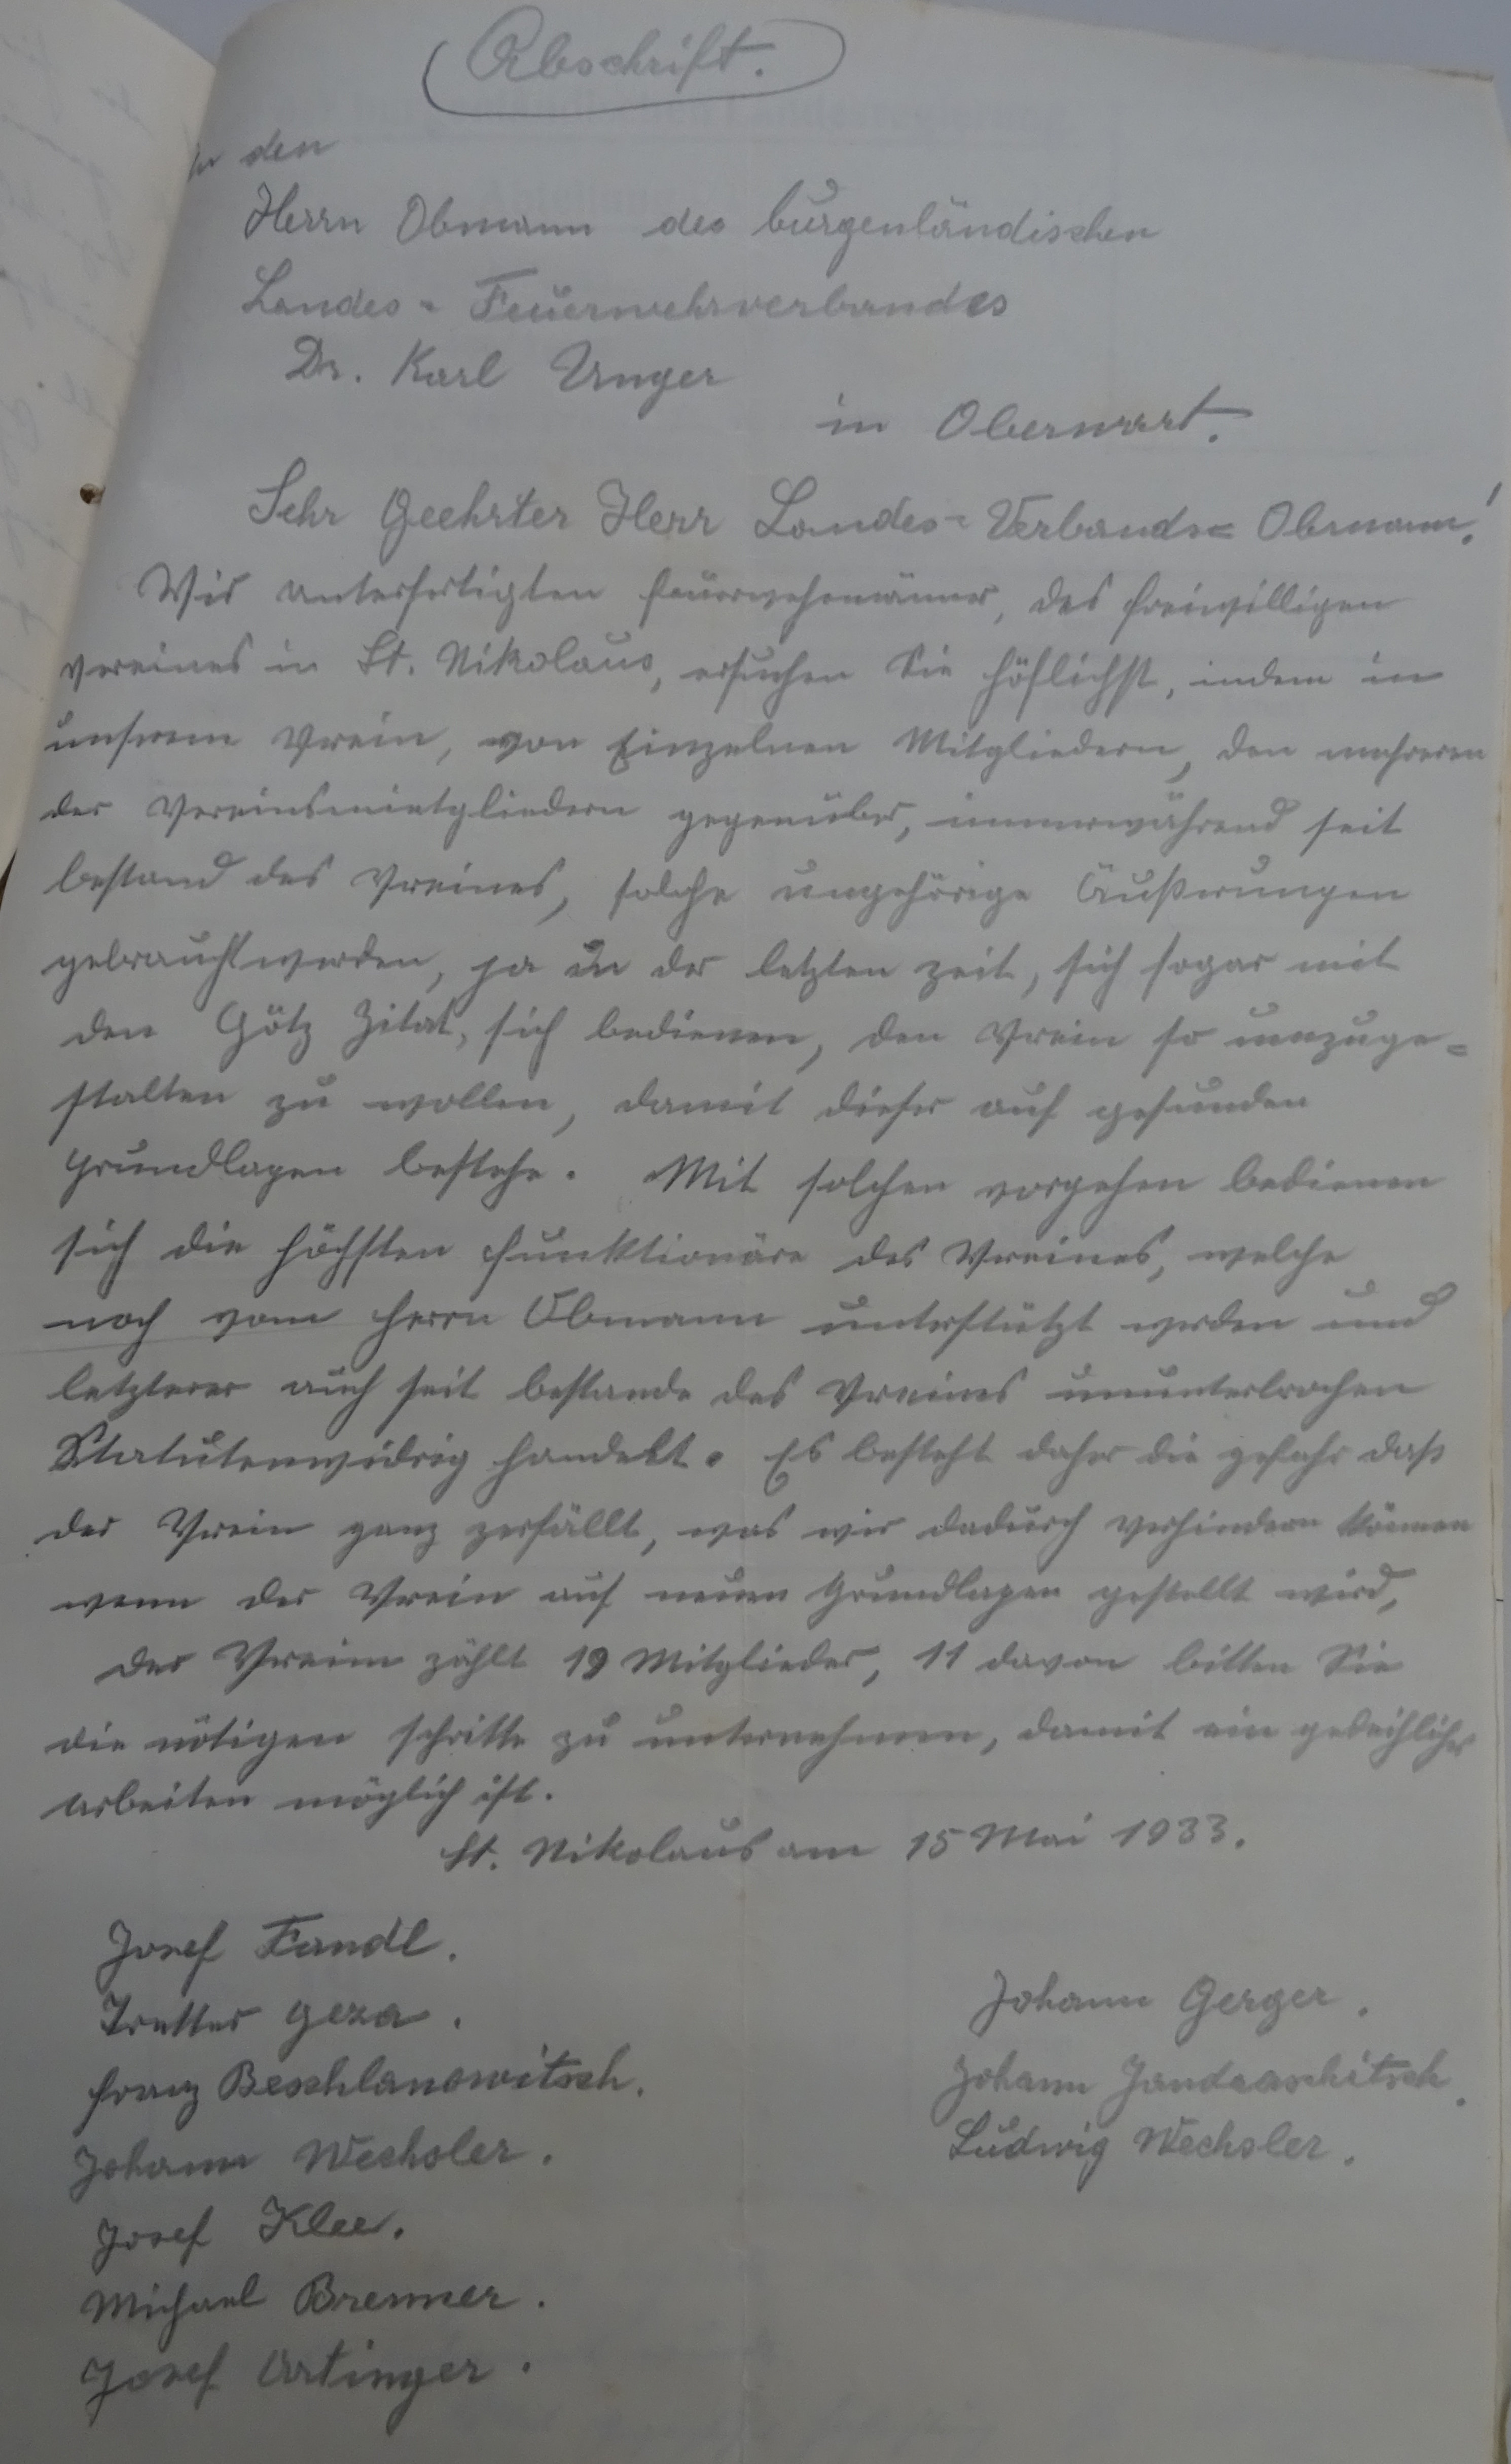 Abschrift.
An den
Herrn Obmann des burgenländischen
Landes-Feuerwehrverbandes
Dr. Karl Unger
in Oberwart.
Sehr Geehrter Herr Landes-Verbands-Obmann!
Wir unterfertigten Feuerwehrmänner, des freiwilligen
Vereines in St. Nikolaus, ersuchen Sie höflichst, indem in
unserem Verein, von Einzelnen Mitgliedern, den mehreren
der Vereinsmietgliedern gegenüber, immerwährend seit
bestand des Vereines, solche ungehörige Äußerungen
gebraucht werden, ja in der letzten zeit, sich sogar mit
den Götz Zitat, sich bedienen, den Verein so umzuge-
stalten zu wollen, damit dieser auf gesunden
Grundlagen bestehe. Mit solchen vorgehen bedienen
sich die höchsten Funktionäre des Vereines, welche
noch vom Herrn Obmann unterstützt werden und
letzterer auch seit bestande des Vereines ununterbrochen
Statutenwidrig handelt. Es besteht daher die gefahr daß
der Verein ganz zerfällt, was wir dadurch verhindern können
wenn der Verein auf neuen Grundlagen gestellt wird,
der Verein zählt 19 Mitglieder, 11 davon bitten Sie
die nötigen schritte zu unternehmen, damit ein gedeihliches
arbeiten möglich ist.
St. Nikolaus am 15 Mai 1933.
Josef Fandl.
Tretter Geza.
Franz Beschlanowitsch.
Johann Wechsler.
Josef Klee.
Michael Brenner.
Josef Artinger.
Johann Gerger.
Johann Jandraschitsch.
Ludwig Wechsler.